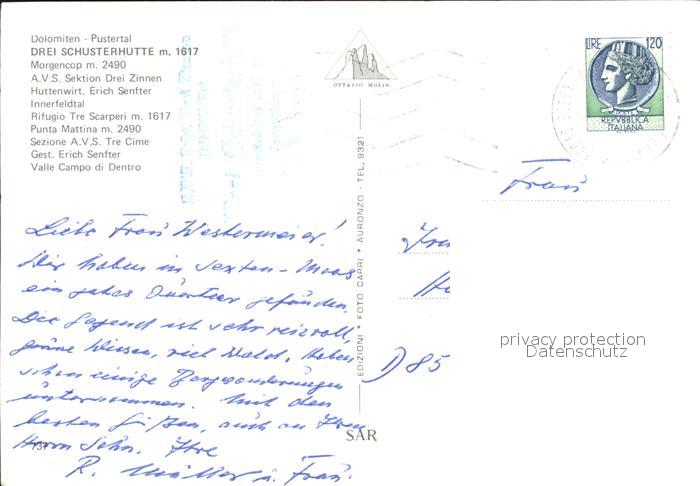 Dolomiten - Pustertal
DREI SCHUSTERHUTTE m. 1617
Morgencop m. 2490
A.V.S. Sektion Drei Zinnen
Huttenwirt. Erich Senfter
Innerfeldtal
Rifugio Tre Scarperi m. 1617
Punta Mattina m. 2490
Sezione A.V.S. Tre Cime
Gest. Erich Senfter
Valle Campo di Dentro
OTTAVIO MOLIN
LIRE 120
POSTE
REPVBBLICA
ITALIANA
EDIZIONI * FOTO CAPRI * AURONZO - TEL. 9321
Frau
D 85
privacy protection
Datenschutz
Liebe Frau Westermeier!
Wir haben in Sexten-Moos
ein gutes Quartier gefunden.
Die Gegend ist sehr reizvoll,
grüne Wiesen, viel Wald. Haben
schon einige Bergwanderungen
unternommen. Mit den
besten Grüßen, auch an Ihren
Herrn Sohn. Ihre
R. Müller u. Frau.
SAR